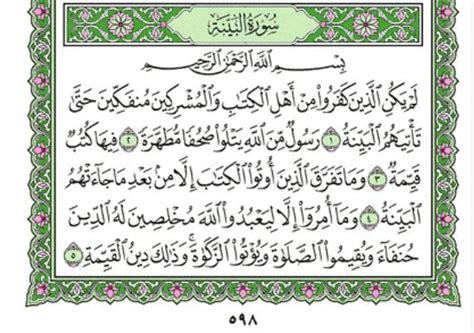 سُورَةُ البَيِّنَةِ
بِسْمِ ٱللَّهِ ٱلرَّحْمَٰنِ ٱلرَّحِيمِ
لَمْ يَكُنِ ٱلَّذِينَ كَفَرُوا۟ مِنْ أَهْلِ ٱلْكِتَٰبِ وَٱلْمُشْرِكِينَ مُنفَكِّينَ حَتَّىٰ
تَأْتِيَهُمُ ٱلْبَيِّنَةُ ١ رَسُولٌ مِّنَ ٱللَّهِ يَتْلُوا۟ صُحُفًا مُّطَهَّرَةً ٢ فِيهَا كُتُبٌ
قَيِّمَةٌ ٣ وَمَا تَفَرَّقَ ٱلَّذِينَ أُوتُوا۟ ٱلْكِتَٰبَ إِلَّا مِنۢ بَعْدِ مَا جَآءَتْهُمُ
ٱلْبَيِّنَةُ ٤ وَمَآ أُمِرُوٓا۟ إِلَّا لِيَعْبُدُوا۟ ٱللَّهَ مُخْلِصِينَ لَهُ ٱلدِّينَ
حُنَفَآءَ وَيُقِيمُوا۟ ٱلصَّلَوٰةَ وَيُؤْتُوا۟ ٱلزَّكَوٰةَ ۚ وَذَٰلِكَ دِينُ ٱلْقَيِّمَةِ ٥
٥٩٨